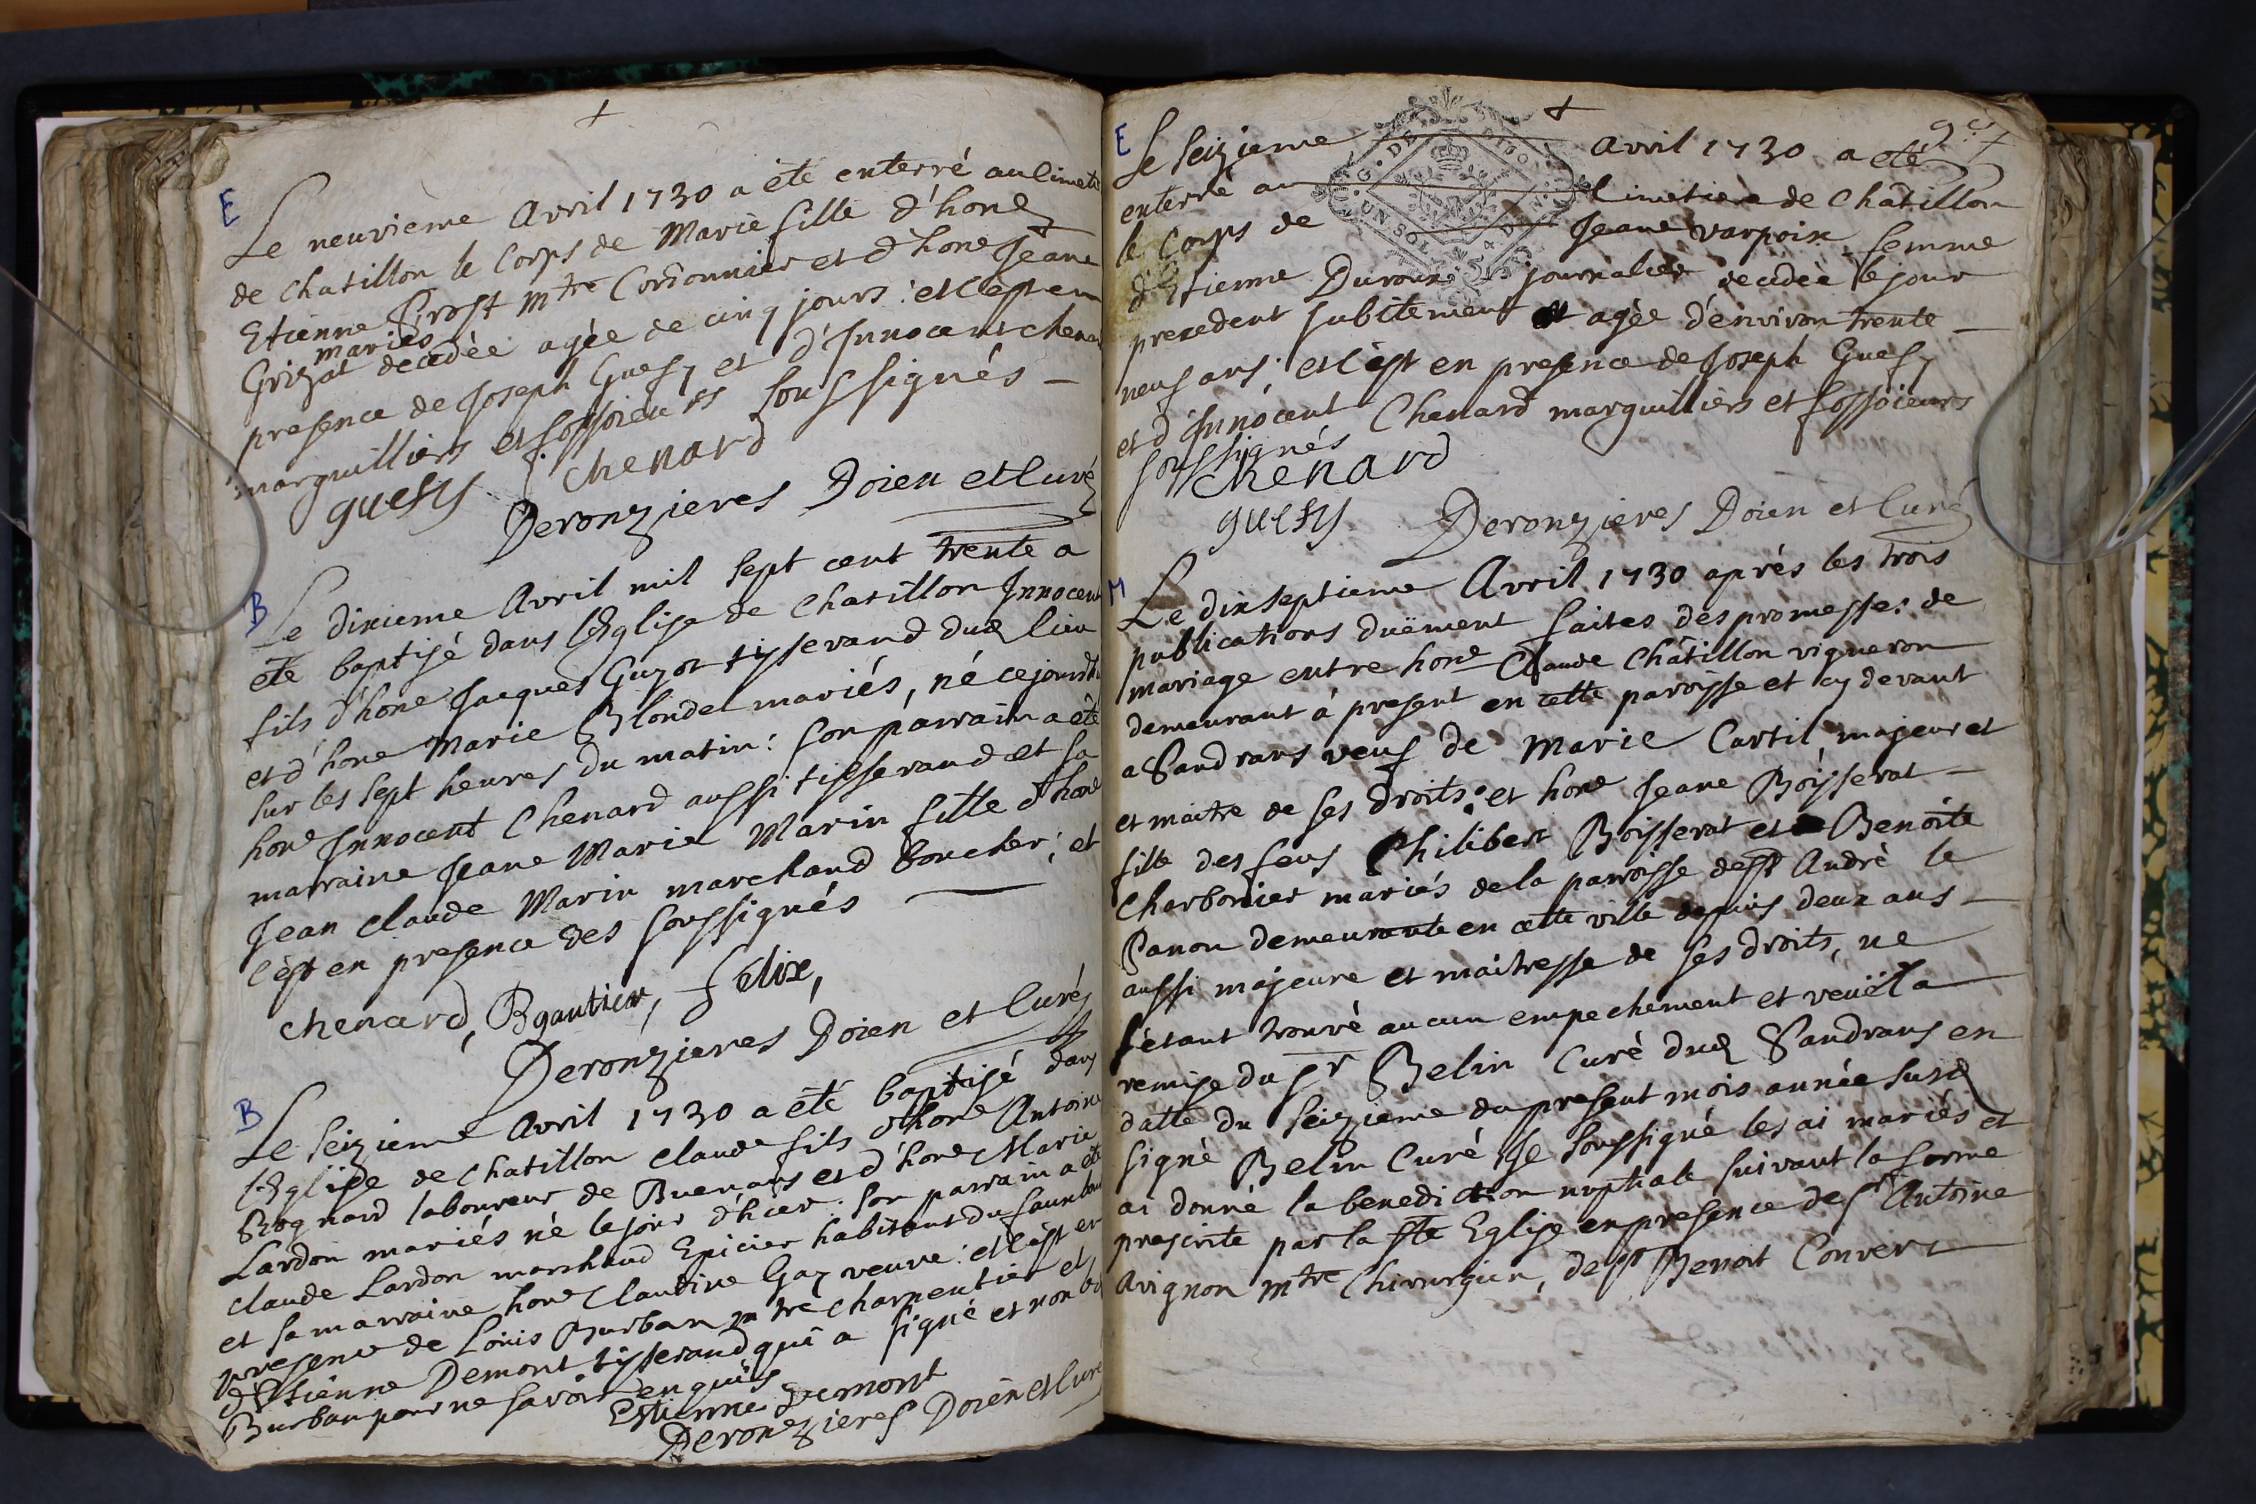 E
Le neuvieme Avril 1730 a été enterré au Cimetie
de Chatillon le Corps de Marie fille d'hone
Etienne Prost mtre Cordonnier et d'hone Jeane
mariés
Grizat decedée agée de cinq jours : et c'est en
presence de Joseph Guesy et d'Innocent Chenar
marguilliers et fossoieurs Soussignés —
guesy chenard
Deronzieres Doien et Curé
B
Le dixieme Avril mil sept cent trente a
été baptisé dans l'Eglise de Chatillon Innocent
fils d'hone Jacques Guyot tisserand dud lieu
et d'hone Marie Blondel mariés, né cejourdh
sur les sept heures du matin : son parrain a été
hone Innocent Chenard aussi tisserand et sa
marraine Jeane Marie Marin fille d'hone
Jean Claude Marin marchand Boucher ; et
c'est en presence des soussignés
chenard, Bgautier, felix,
Deronzieres Doien et Curé
B
Le seizieme Avril 1730 a été baptisé dans
l'Eglise de Chatillon Claude fils d'hone Antoine
Rognard laboureur de Buenans et d'hone Marie
Lardon mariés né le jour d'hier : son parrain a été
Claude Lardon marchand Epicier habitant du
et sa marraine hone Claudine Gay veuve : et c'est en
presence de Louis Burban mtre charpentier et
d'Etienne Demont tisserand qui a signé et non led
Burban pour ne savoir enquis
Estienne Demont
Deronzieres Doien et Curé
E
Le seizieme Avril 1730 a été
enterré au Cimetiere de Chatillon
le Corps de Jeane Varpoix femme
d'Etienne Duroux journalier decedée le jour
precedent subitement et agée d'environ trente —
neuf ans : et c'est en presence de Joseph Guesy
et d'Innocent Chenard marguilliers et fossoieurs
soussignés
chenard
guesy Deronzieres Doien et Curé
M
Le dixseptieme Avril 1730 aprés les trois
publications duëment faites des promesses de
mariage entre hone Claude Châtillon vigneron
demeurant à present en cette paroisse et cy devant
a Sandrans veuf de Marie Cartil, majeur et
et maitre de ses droits : et hone Jeane Boisserat —
fille des feus Philibert Boisserat et Benoîte
Charbonier mariés de la paroisse de st André le
Panou demeurante en cette ville depuis deux ans —
aussi majeure et maitresse de ses droits, ne
s'etant trouvé aucun empechement et veuë la
remise du Sr Belin Curé dud Sandrans en
datte du seizieme du present mois année susd
signé Belin Curé Je soussigné les ai mariés et
ai donné la benediction nuptiale suivant la forme
prescrite par la ste Eglise en presence de sr Antoine
Avignon mtre Chirurgien, de sr Benoit Convert